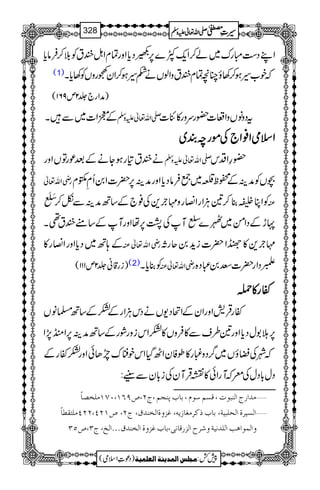 سیرتِ مصطفیٰ صلی اللہ تعالیٰ علیہ وسلم
328
اپنے دست مبارک میں لے کر ایک کپڑے پر رکھ دیا اور تمام اہل خندق کو بلا کر فرمایا
کہ خوب سیر ہو کر کھاؤ چنانچہ تمام خندق والوں نے شکم سیر ہو کر ان کھجوروں کو کھایا۔(1)
(مدارج جلد۲ ص۱۶۹)
یہ دونوں واقعات حضور سرور کائنات صلی اللہ تعالیٰ علیہ وسلم کے معجزات میں سے ہیں۔
اسلامی افواج کی مورچہ بندی
حضور اقدس صلی اللہ تعالیٰ علیہ وسلم نے خندق تیار ہو جانے کے بعد عورتوں اور
بچوں کو مدینہ کے محفوظ قلعہ میں جمع فرما دیا اور مدینہ پر حضرت ابن اُمِ مکتوم رضی اللہ تعالیٰ
عنہ کو اپنا خلیفہ بنا کر تین ہزار انصار و مہاجرین کی فوج کے ساتھ مدینہ سے نکل کر سَلع
پہاڑ کے دامن میں ٹھہرے سلع آپ کی پشت پر تھا اور آپ کے سامنے خندق تھی۔
مہاجرین کا جھنڈا حضرت زید بن حارثہ رضی اللہ تعالیٰ عنہ کے ہاتھ میں دیا اور انصار کا
علمبردار حضرت سعد بن عبادہ رضی اللہ تعالیٰ عنہ کو بنایا۔(2) (زرقانی جلد۲ ص۱۱۱)
کفار کا حملہ
کفار قریش اور ان کے اتحادیوں نے دس ہزار کے لشکر کے ساتھ مسلمانوں
پر ہلہ بول دیا اور تین طرف سے کافروں کا لشکر اس زور شور کے ساتھ مدینہ پر امنڈ پڑا
کہ شہر کی فضاؤں میں گرد و غبار کا طوفان اٹھ گیا اس خوفناک چڑھائی اور لشکر کفار کے
دل بادل کی معرکہ آرائی کا نقشہ قرآن کی زبان سے سنیے:
1……مدارج النبوت ، قسم سوم ، باب پنجم ،ج۲، ص۱۶۹، ۱۷۰ ملخصاً
2……السيرة الحلبية، باب ذكرمغازيه، غزوةالخندق، ج۲، ص۴۲۱، ۴۲۲ ملتقطاً
والمواهب اللدنية وشرح الزرقانی،باب غزوة الخندق...الخ، ج۳، ص۳۵
پیش کش: مجلس المدينة العلمية (دعوتِ اسلامی)